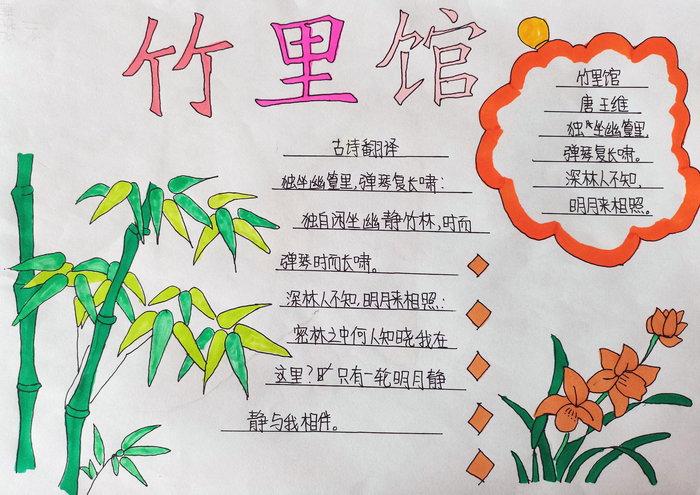 竹里馆
古诗翻译
独坐幽篁里,弹琴复长啸:
独自闲坐幽静竹林,时而
弹琴时而长啸。
深林人不知,明月来相照:
密林之中何人知晓我在
这里?只有一轮明月静
静与我相伴。
竹里馆
唐 王维
独坐幽篁里,
弹琴复长啸。
深林人不知,
明月来相照。